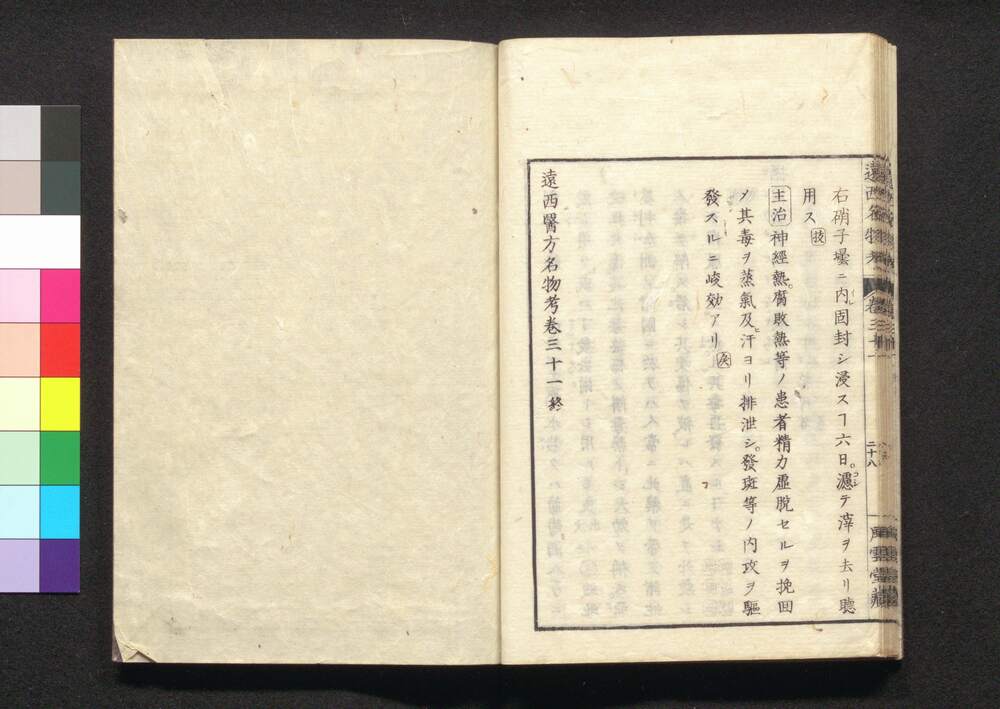 右硝子壜ニ内レ固封シ浸スヿ六日。濾テ滓ヲ去リ聴
用ス 技
主治 神經熱。腐敗熱等ノ患者精力虚脱セルヲ挽回
メ其毒ヲ蒸氣及ヒ汗ヨリ排泄シ。發斑等ノ内攻ヲ驅
發スルニ峻効アリ
遠西醫方名物考卷三十一終
卷三十一
二十八